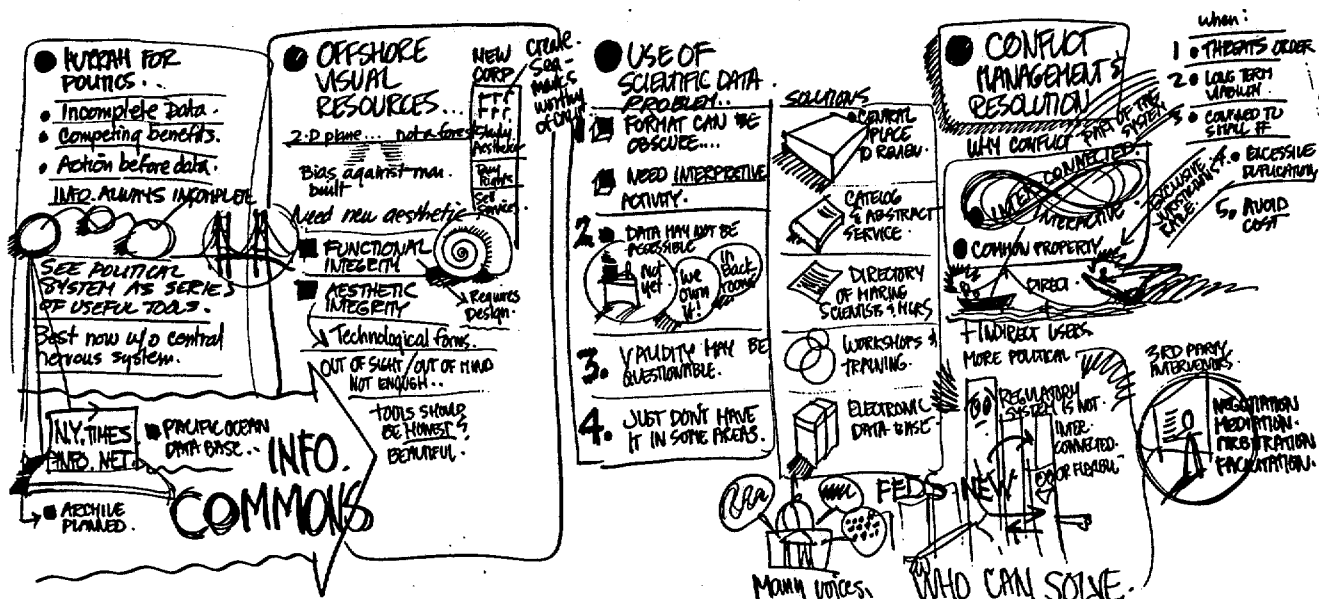 HURRAH FOR
POLITICS..
Incomplete Data.
Competing benefits.
Action before data.
INFO. ALWAYS INCOMPLETE
SEE POLITICAL
SYSTEM AS SERIES
OF USEFUL TOOLS.
Best now w/o central
nervous system.
N.Y. TIMES
INFO. NET.
ARCHIVE
PLANNED.
PACIFIC OCEAN
DATA BASE..
INFO.
COMMONS
OFFSHORE
VISUAL
RESOURCES...
2-D plane... not a forest
Bias against man.
built
Need new aesthetic
FUNCTIONAL
INTEGRITY
AESTHETIC
INTEGRITY
Technological forms.
OUT OF SIGHT/OUT OF MIND
NOT ENOUGH..
TOOLS SHOULD
BE HONEST &
BEAUTIFUL.
Requires
Design.
NEW
CORP
Create.
Sea-
marks
worthy
of
Study
Aesthetics
Buy
Rights
Sell
Services
USE OF
SCIENTIFIC DATA.
PROBLEM..
1
FORMAT CAN BE
OBSCURE....
NEED INTERPRETIVE
ACTIVITY.
2.
DATA MAY NOT BE
ACESSIBLE
not
yet.
we
own
it!
in
Back
room
3. VALIDITY MAY BE
QUESTIONABLE.
4. JUST DON'T HAVE
IT IN SOME AREAS.
SOLUTIONS
CENTRAL
PLACE
TO REVIEW.
CATALOG
& ABSTRACT
SERVICE.
DIRECTORY
OF MARINE
SCIENTISTS & MGRS
WORKSHOPS &
TRAINING.
ELECTRONIC
DATA-BASE.
Many voices.
FEDS NEW
WHO CAN SOLVE.
CONFLICT
MANAGEMENT &
RESOLUTION
WHY CONFLICT
PART OF THE
SYSTEM
INTER CONNECTED
INTERACTIVE
COMMON PROPERTY
DIRECT
+ INDIRECT USERS
MORE POLITICAL
REGULATORY
SYSTEM IS NOT
INTER-
CONNECTED
OR FLEXIBLE
EXCLUSIVE
when:
1 THREATS ORDER
2 LONG TERM
3 CONFINED TO
SMALL #
4. EXCESSIVE
5. AVOID
COST
3RD PARTY
INTERVENORS.
NEGOTIATION
MEDIATION.
ARBITRATION
FACILITATION.